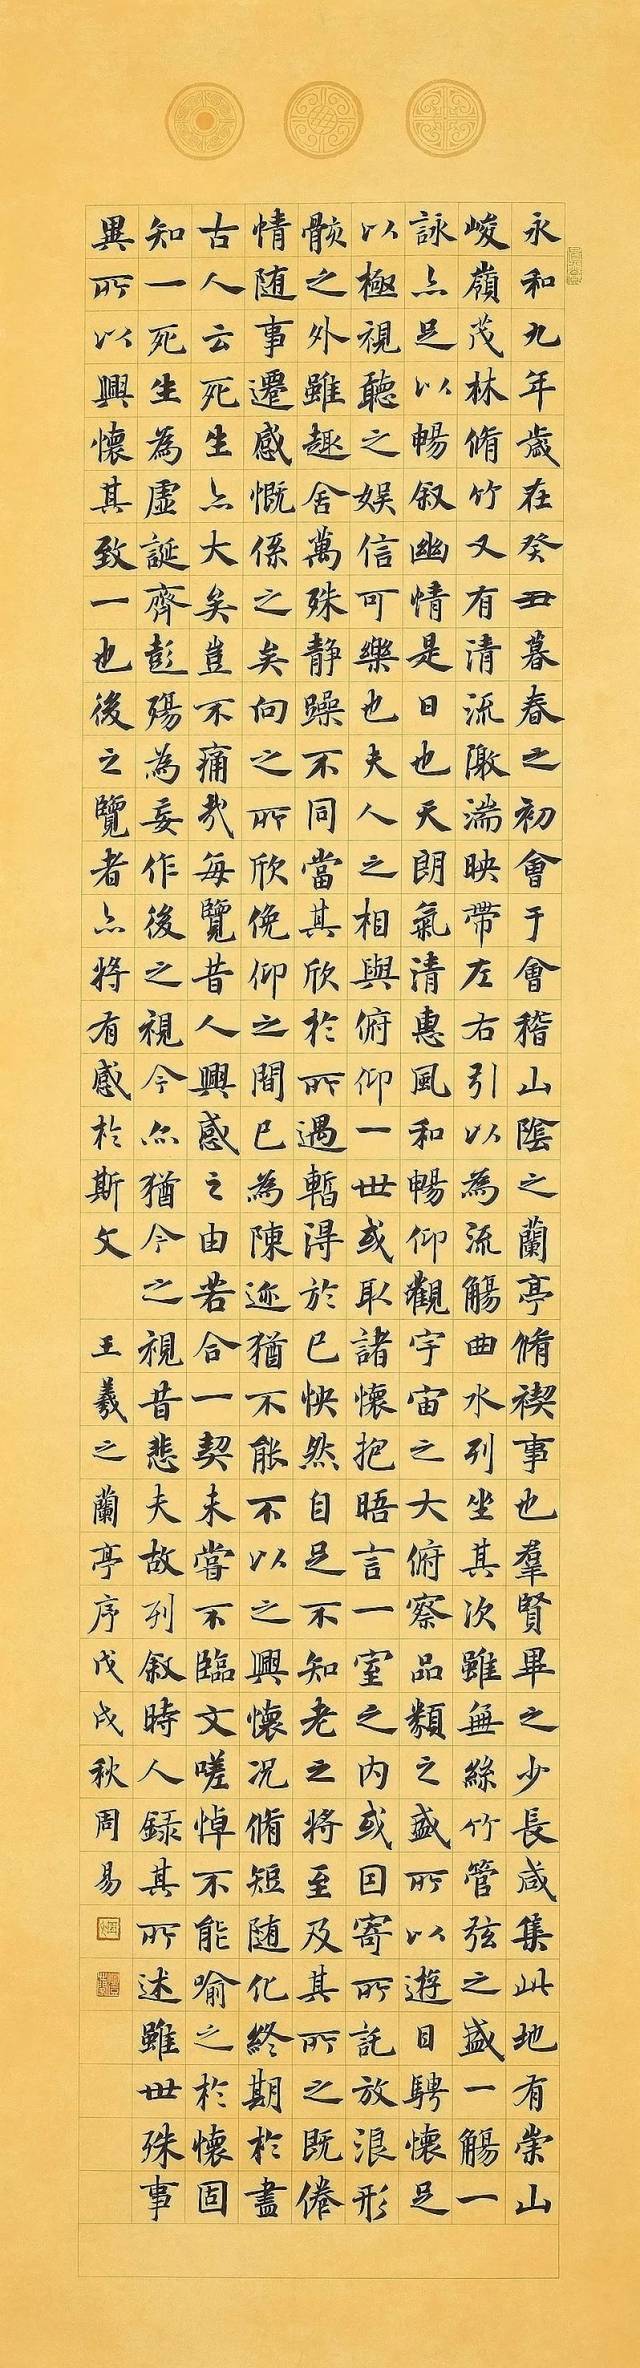 永和九年歲在癸丑暮春之初會于會稽山陰之蘭亭脩禊事也羣賢畢之少長咸集此地有崇山
峻嶺茂林脩竹又有清流激湍映帶左右引以為流觴曲水列坐其次雖無絲竹管弦之盛一觴一
詠亦足以暢叙幽情是日也天朗氣清惠風和暢仰觀宇宙之大俯察品類之盛所以遊目騁懷足
以極視聽之娱信可樂也夫人之相與俯仰一世或取諸懷抱晤言一室之内或因寄所託放浪形
骸之外雖趣舍萬殊静躁不同當其欣於所遇暫得於己怏然自足不知老之將至及其所之既倦
情随事遷感慨係之矣向之所欣俛仰之間已為陳迹猶不能不以之興懷况脩短随化終期於盡
古人云死生亦大矣豈不痛哉每覽昔人興感之由若合一契未嘗不臨文嗟悼不能喻之於懷固
知一死生為虛誕齊彭殤為妄作後之視今亦猶今之視昔悲夫故列叙時人録其所述雖世殊事
異所以興懷其致一也後之覽者亦將有感於斯文 王羲之蘭亭序戊戌秋周易